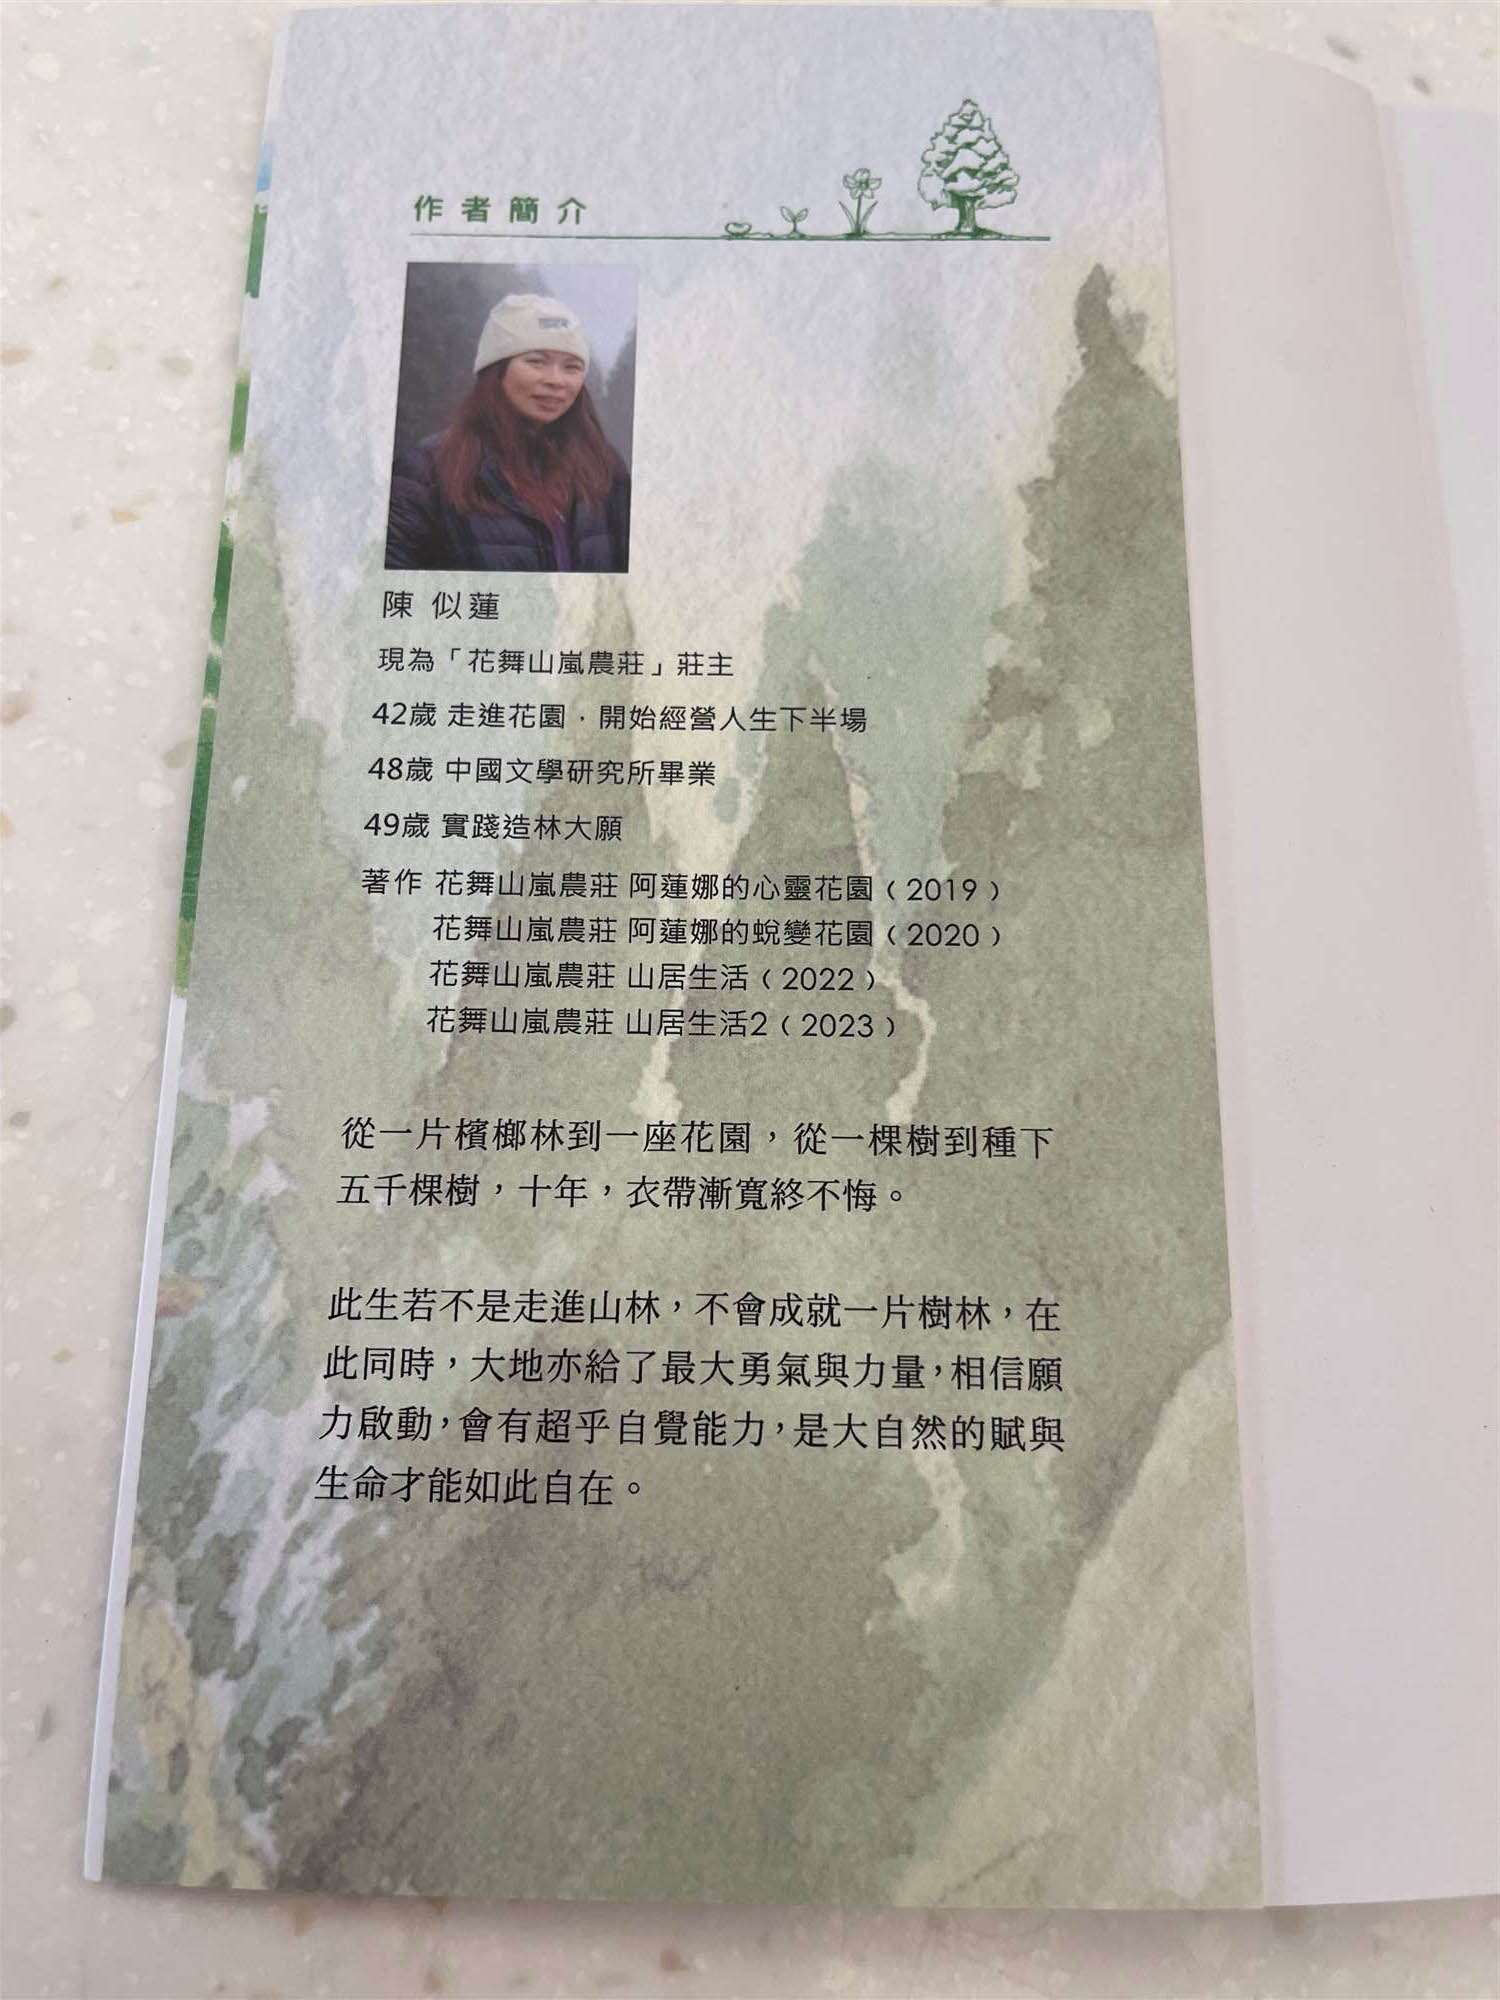 作者簡介
陳 似蓮
現為「花舞山嵐農莊」莊主
42歲 走進花園，開始經營人生下半場
48歲 中國文學研究所畢業
49歲 實踐造林大願
著作 花舞山嵐農莊 阿蓮娜的心靈花園（2019）
花舞山嵐農莊 阿蓮娜的蛻變花園（2020）
花舞山嵐農莊 山居生活（2022）
花舞山嵐農莊 山居生活2（2023）
從一片檳榔林到一座花園，從一棵樹到種下
五千棵樹，十年，衣帶漸寬終不悔。
此生若不是走進山林，不會成就一片樹林，在
此同時，大地亦給了最大勇氣與力量，相信願
力啟動，會有超乎自覺能力，是大自然的賦與
生命才能如此自在。